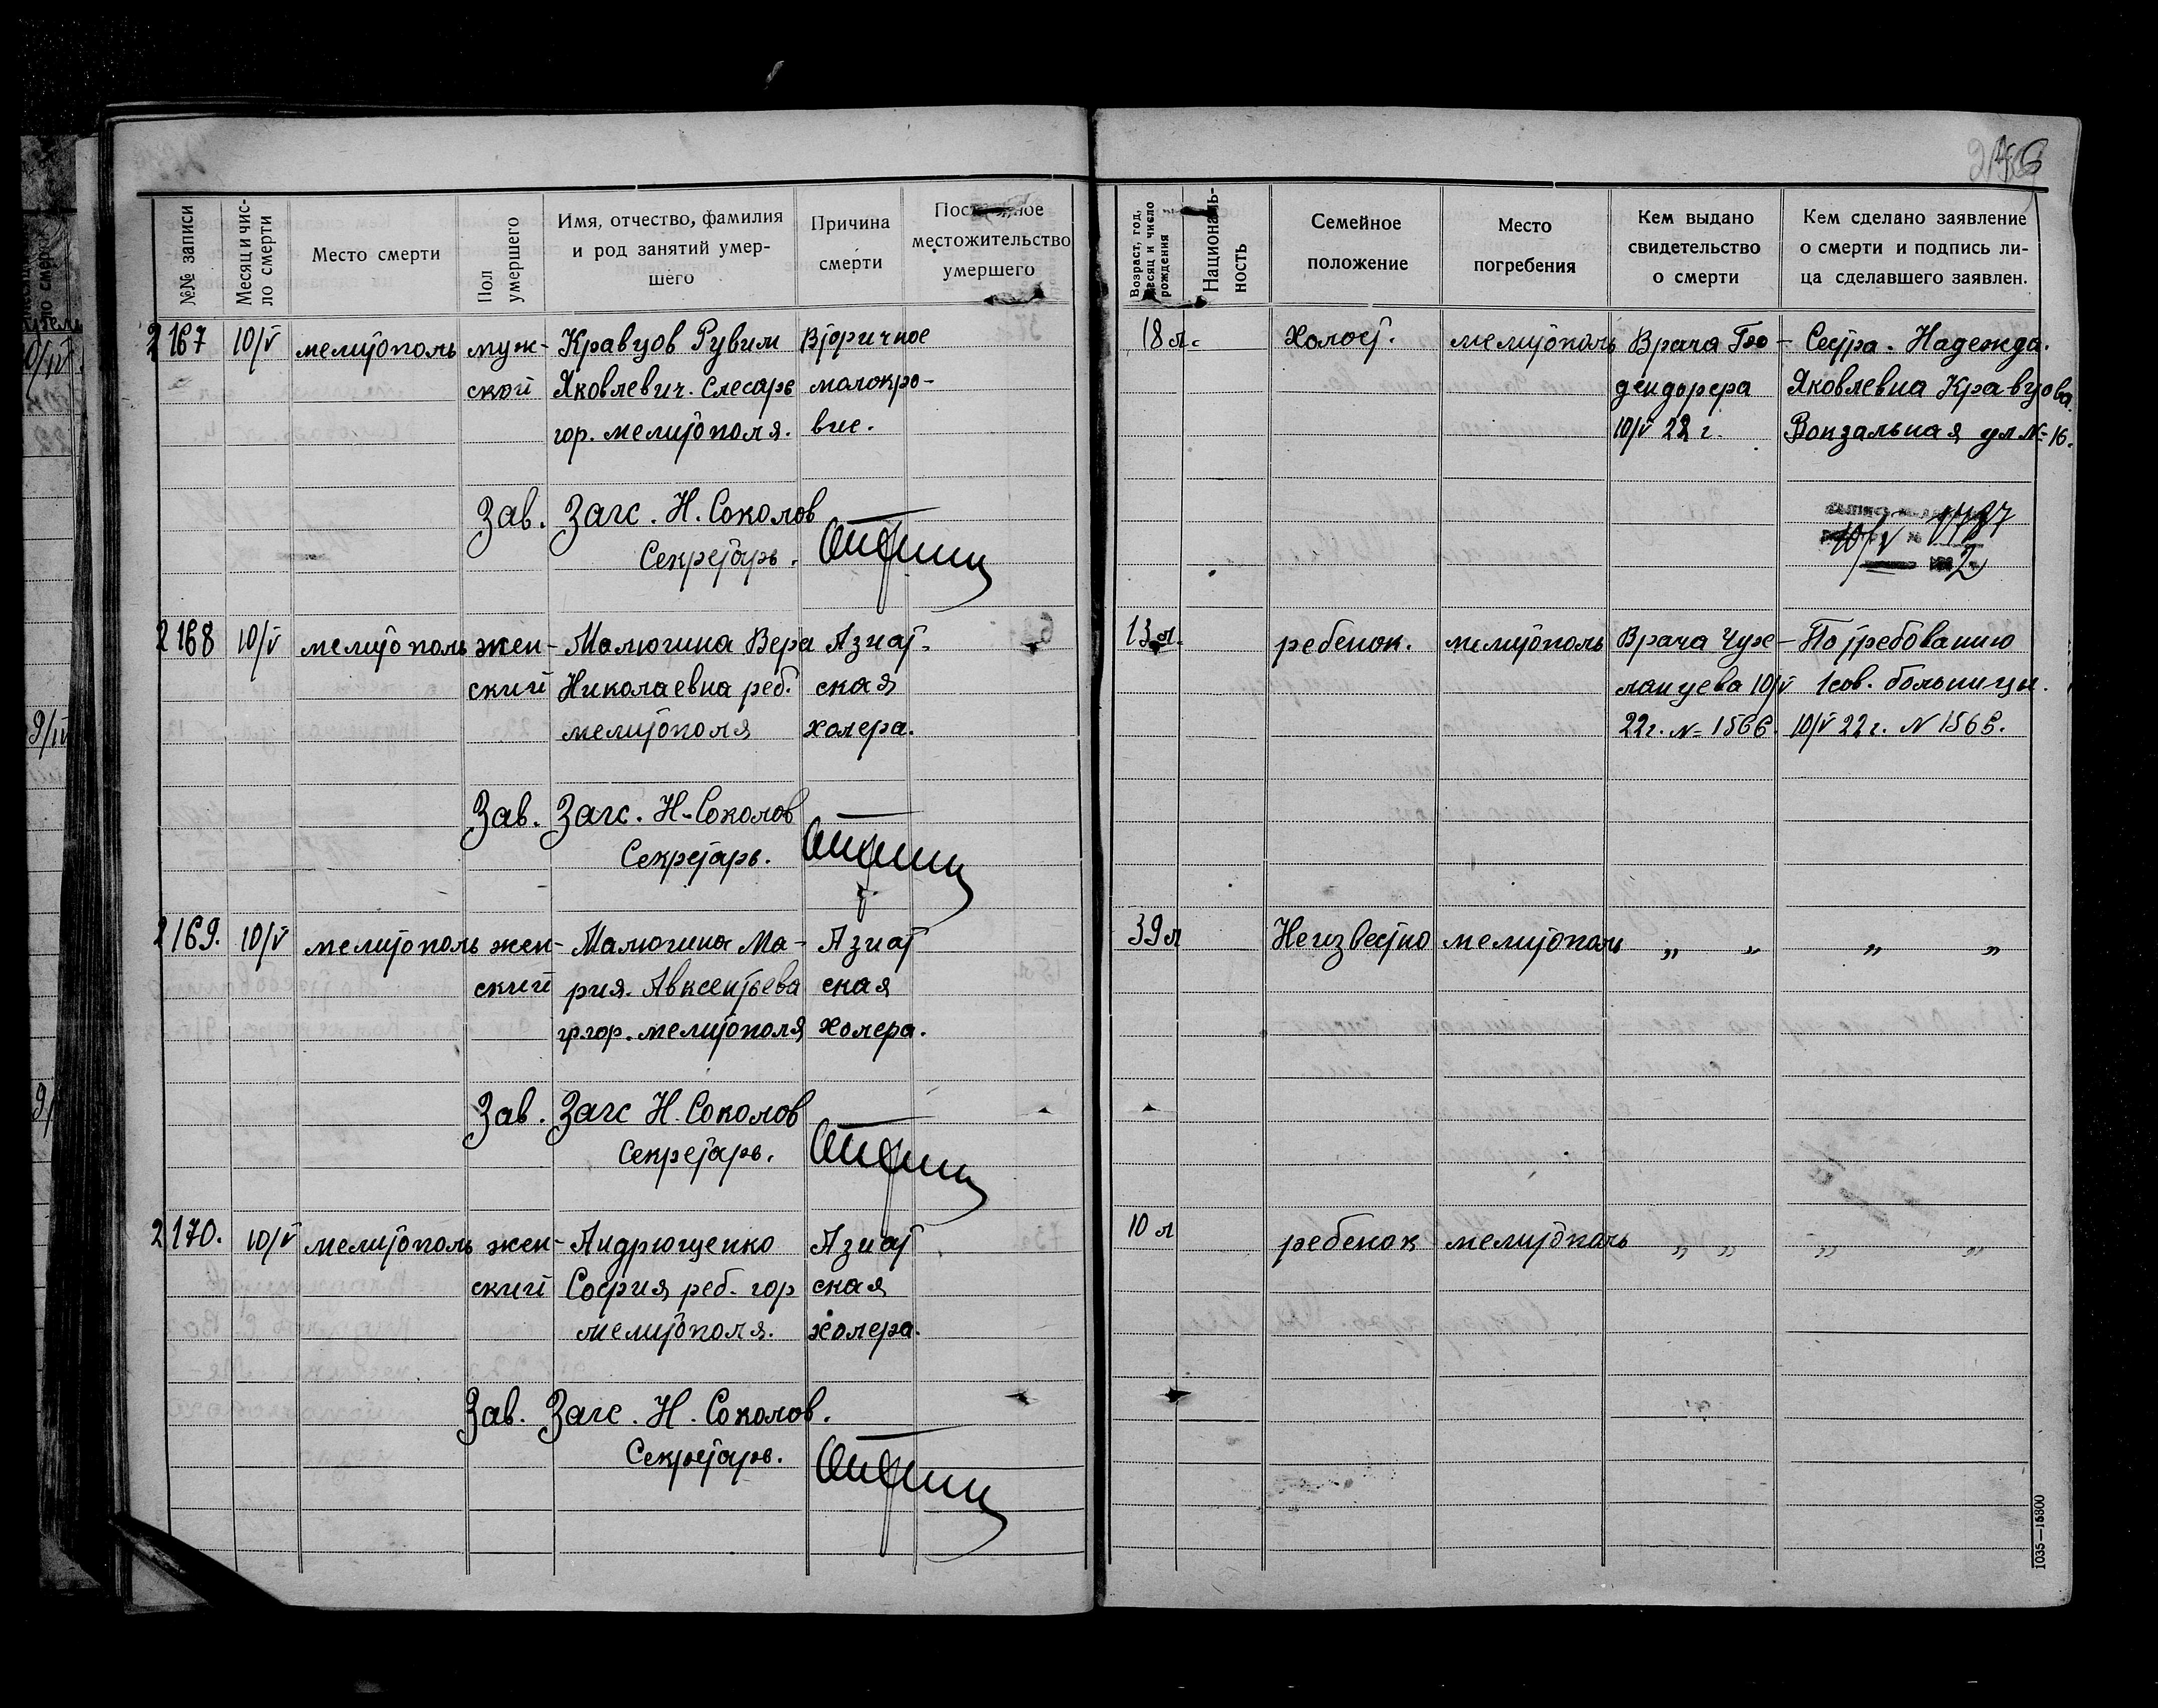 №№ записи
Месяц и чис-
ло смерти
Место смерти
Пол
умершего
Имя, отчество, фамилия
и род занятий умер-
шего
Причина
смерти
местожительство
умершего
Возраст, год,
месяц и число
рождения
Националь-
ность
Семейное
положение
Место
погребения
Кем выдано
свидетельство
о смерти
Кем сделано заявление
о смерти и подпись ли-
ца сделавшего заявлен.
2167 10/V мелитополь муж- Кравцов Рувим Вторичное 18 л. холост. мелитополь Врача Гео- Сестра. Надежда.
ской Яковлевич. Слесарь малокро- Яковлевна Кравцова.
гор. мелитополя. вие. 10/V 22 г. Вокзальная ул № 16.
Зав. Загс. Н. Соколов
Секретарь.
1727
10/V
2
2168 10/V мелитополь жен- Малюгина Вера Азиат- 13 л. ребенок. мелитополь Врача По требованию
ский Николаевна реб. ская 10/V 1 сов. больницы.
мелитополя холера. 22 г. № 1566. 10/V 22 г. N 1566.
Зав. Загс. Н. Соколов
Секретарь.
2169. 10/V мелитополь жен- Малюгина Ма- Азиат 39 л Неизвестно мелитополь „ „ „ „
ский рия. Авксентьева ская
гр гор. мелитополя холера.
Зав. Загс Н. Соколов
Секретарь.
2170. 10/V мелитополь жен- Андрющенко Азиат 10 л ребенок мелитополь „ „ „ „
ский София реб. гор ская
мелитополя. холера.
Зав. Загс. Н. Соколов.
Секретарь.
1035—15300